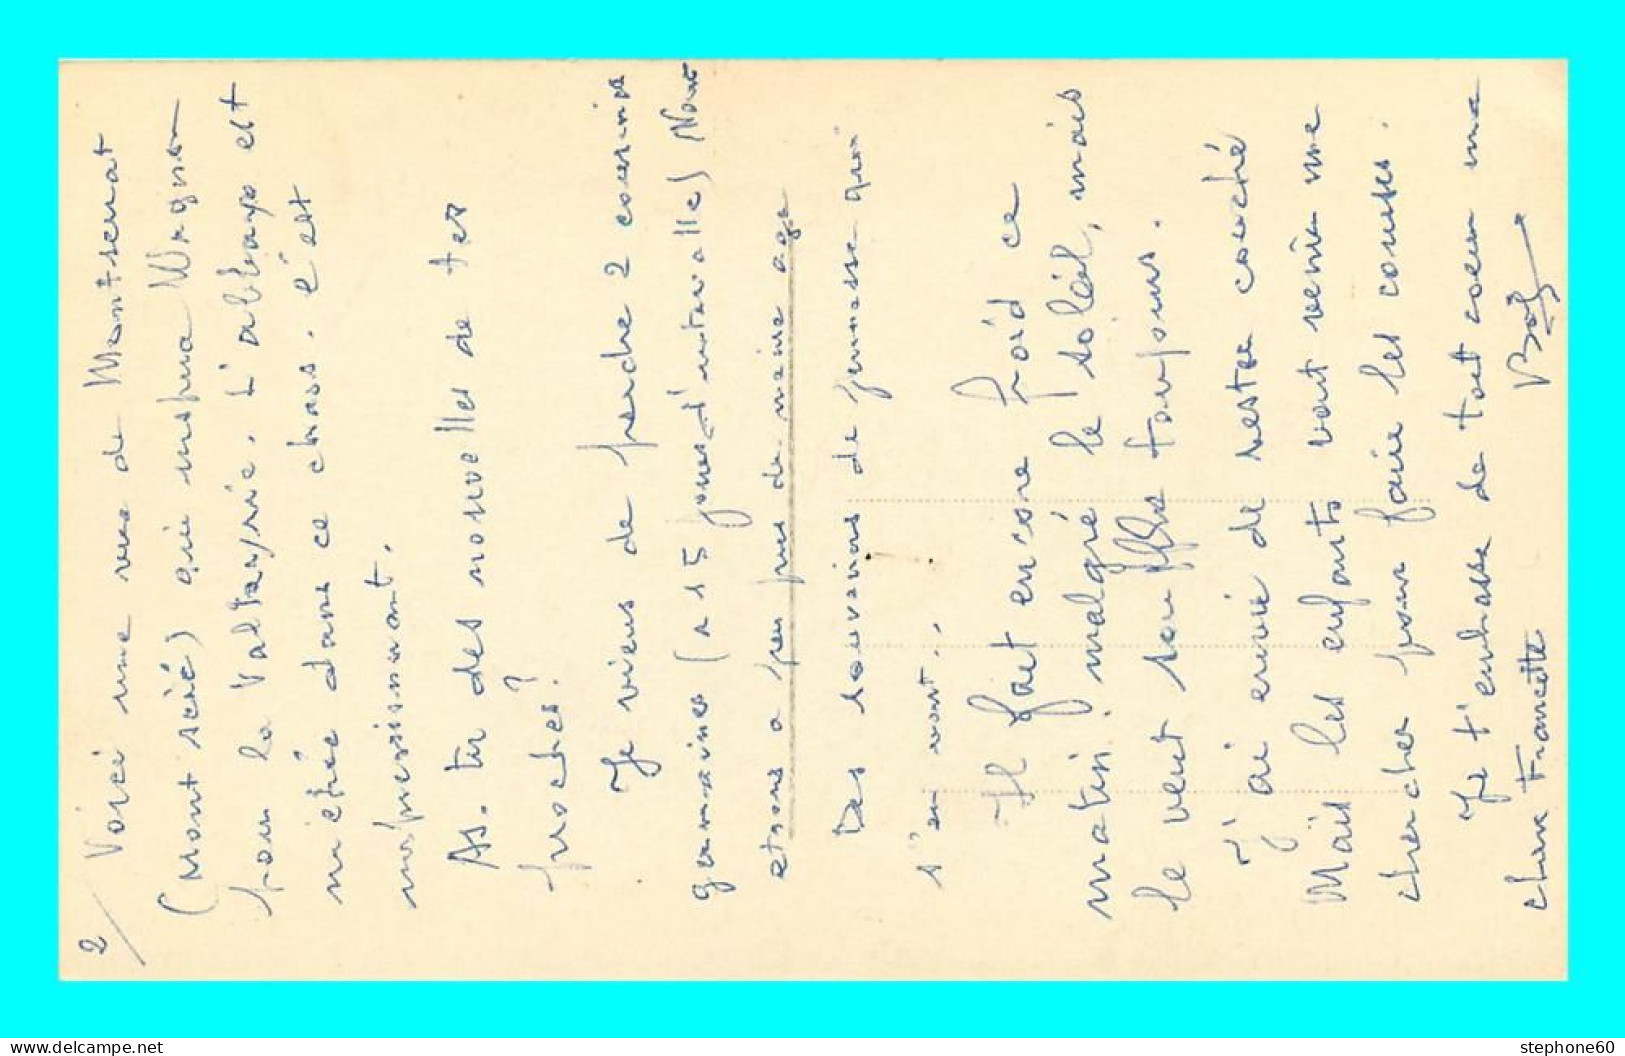 2/
Voici une vue de Montserrat
(Mont scié) qui inspira Wagner
pour la Valkyrie. L'abbaye est
nichée dans ce chaos. C'est
impressionnant.
As-tu des nouvelles de tes
proches?
Je viens de perdre 2 cousines
germaines (a 15 jours d'intervalle) Nous
etions a peu pres du même age
Des souvenirs de jeunesse qui
s'en vont..
Il fait encore froid ce
matin malgré le soleil, mais
le vent souffle toujours.
J'ai envie de rester couché
Mais les enfants vont venir me
chercher pour faire les courses.
Je t'embrasse de tout coeur ma
chere Francette
www.delcampe.net
stephone60